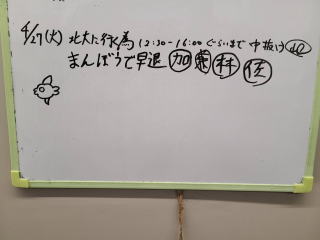 4/27(火) 北大に行く為 12:30-16:00ぐらいまで 中抜け
まんぼうで早退 加 林 佐